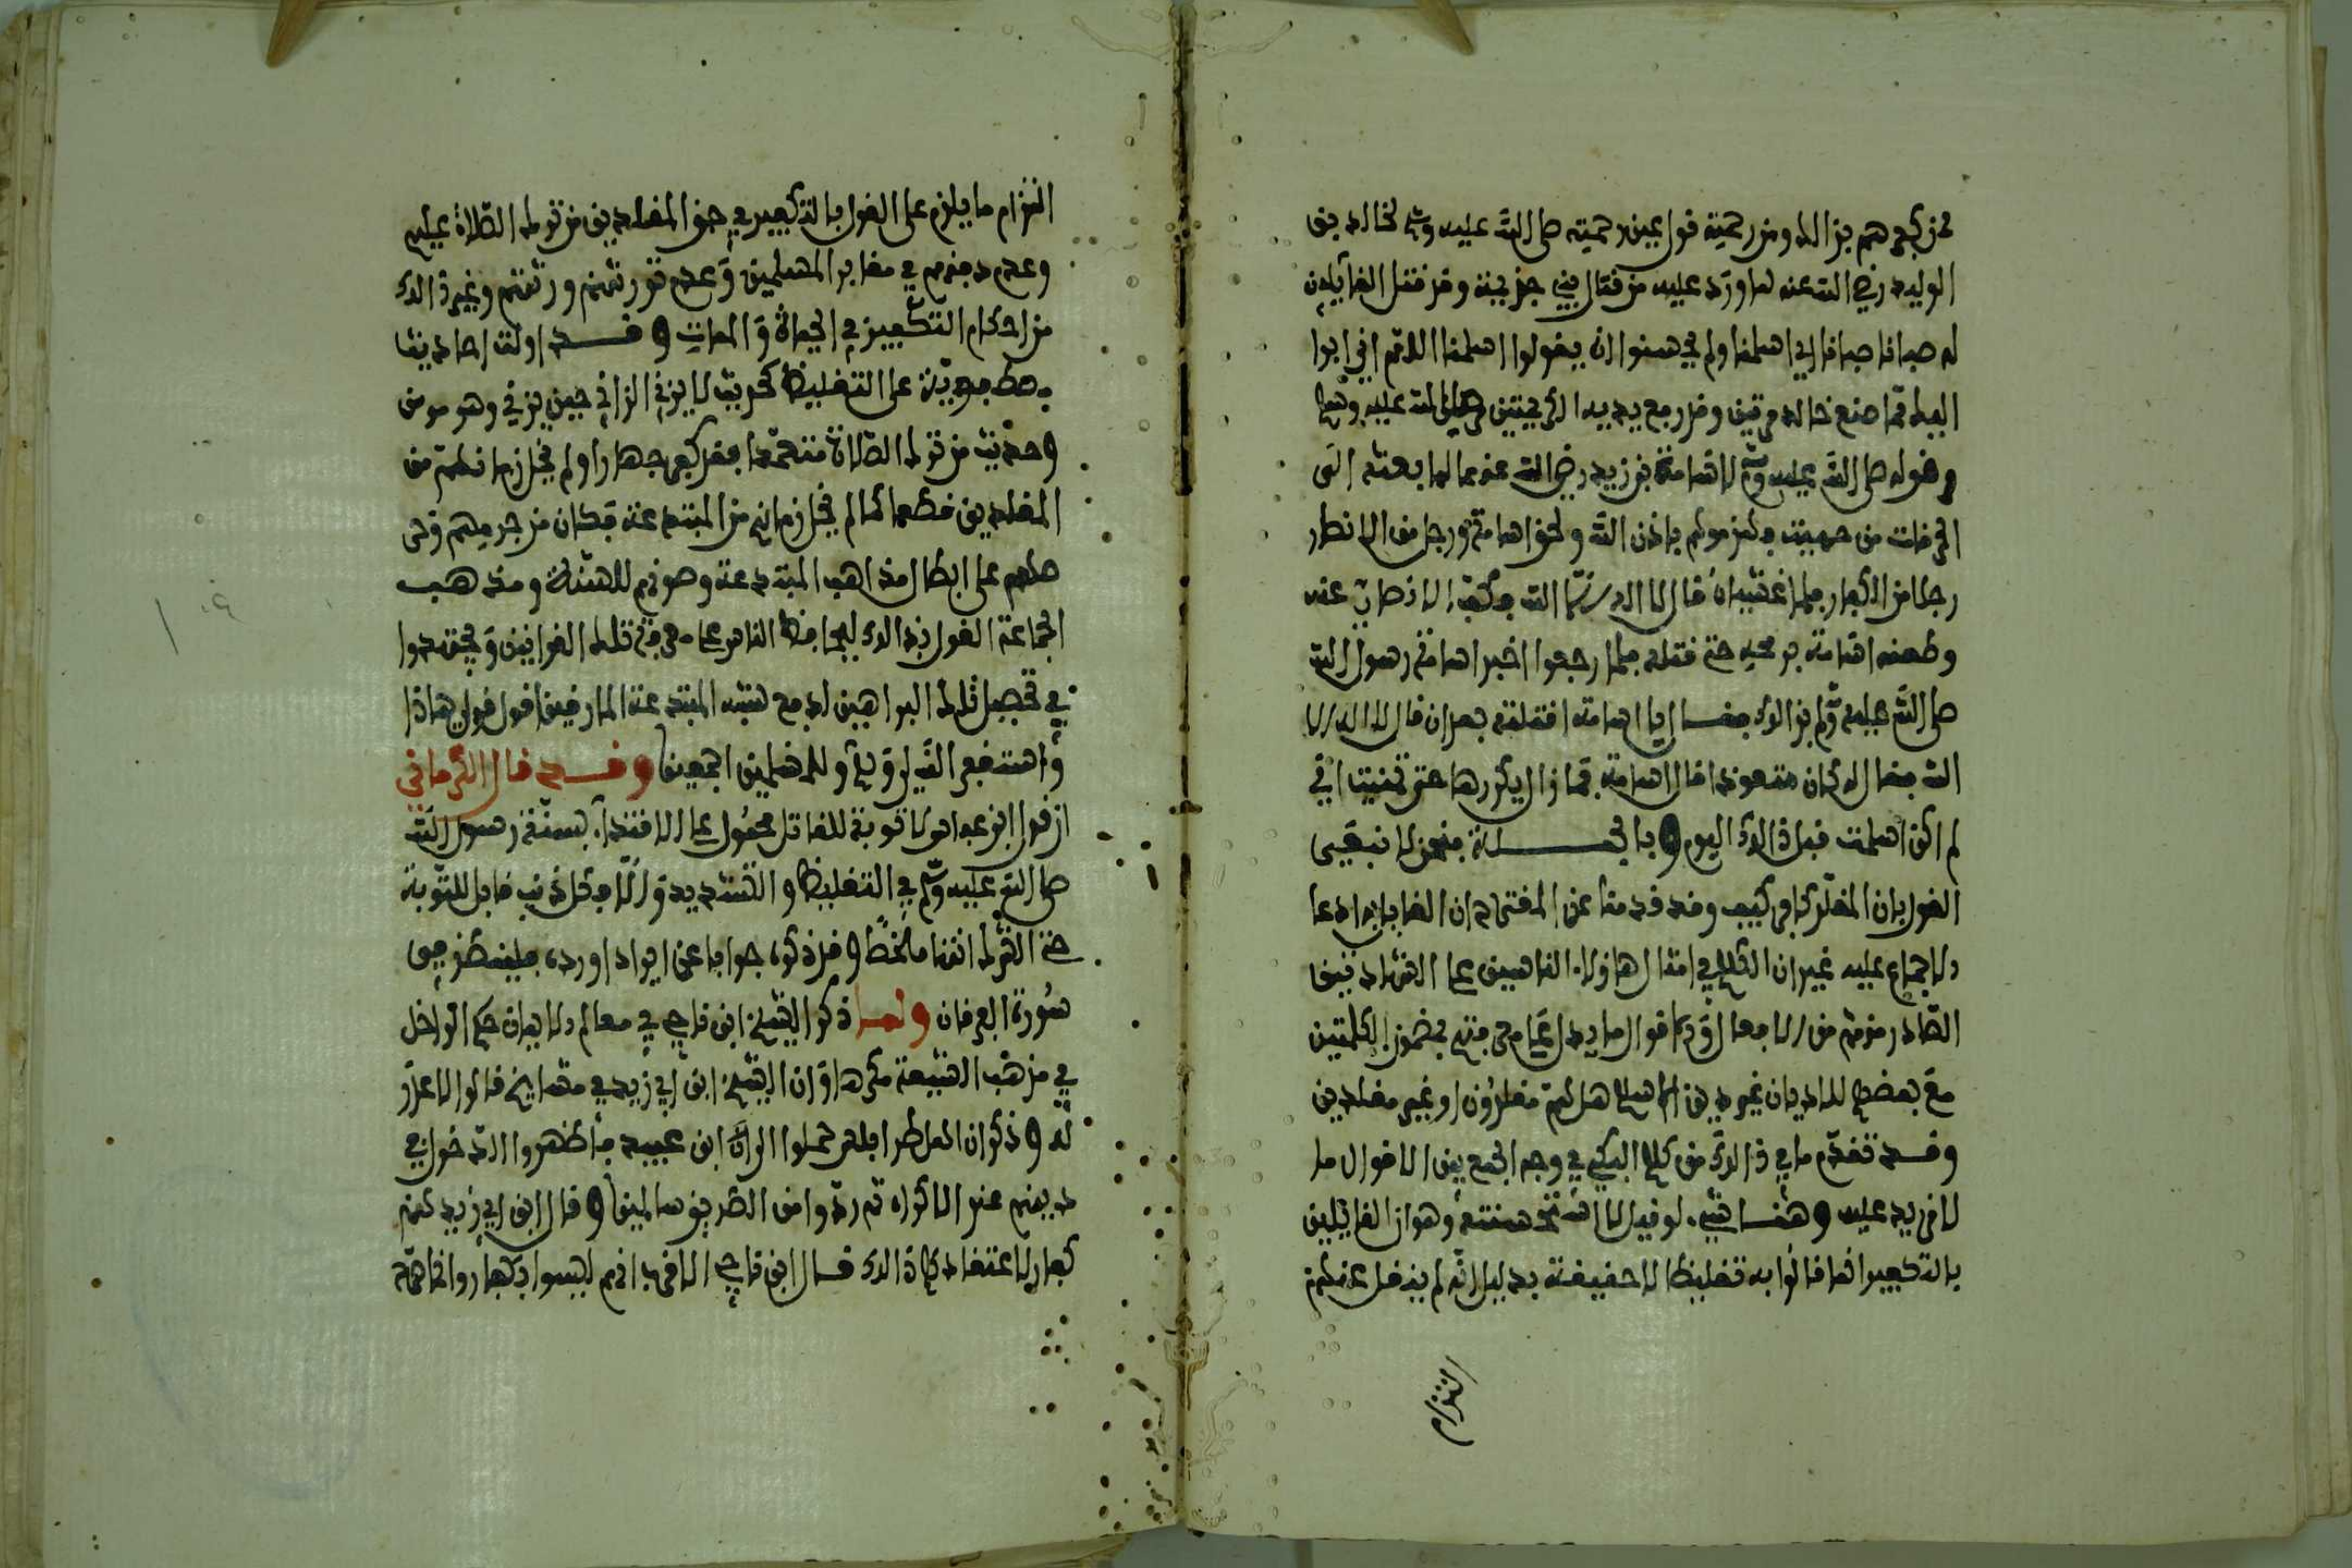 من كفرهم بذالك ومن رحمته قول عين رحمته صلى الله عليه وسلم لخالد بن
الوليد رضي الله عنه لما ورد عليه من قتال بني جذيمة وقد قتل القائلين
له صبانا صبانا اي اسلمنا ولم يحسنوا ان يقولوا اسلمنا اللهم اني ابرا
اليك مما صنع خالد مرتين وقد رفع يديه الكريمتين صلى الله عليه وسلم
وقوله صلى الله عليه وسلم لاسامة بن زيد رضي الله عنهما لما بعثه الى
الحرقات من جهينة فهزموهم باذن الله ولحق اسامة ورجل من الانصار
رجلا من الكفار فلما غشياه قال لا اله الا الله فكف الانصاري عنه
وطعنه اسامة برمحه حتى قتله فلما رجعوا اخبر اسامة رسول الله
صلى الله عليه وسلم بذالك فقال يا اسامة اقتلته بعد ان قال لا اله الا
الله فقال كان متعوذا قال اسامة فما زال يكررها حتى تمنيت اني
لم اكن اسلمت قبل ذالك اليوم وبالجملة فنحن لا نبغي
القول بان المقلد كافر كيف وقد قدمنا عن المقترح ان القايل به ادعا
الاجماع عليه غير ان الكلام في امثال هاؤلاء الناس على الشهادتين
الصادر منهم من الافعال والاقوال ما يدل على معرفته بمضمن الكلمتين
مع بعضهم للاديان غير دين الاسلام هل هم مقلدون او غير مقلدين
وقد تقدم ما في ذالك من كلام البكي في وجه الجمع بين الاقوال ما
لا مزيد عليه وهنا شيء لو قيل لا استحسنته وهو ان القائلين
بالتكفير انما قالوا به تغليظا لا حقيقة بدليل انه لم ينقل عنهم
التزام
التزام ما يلزم على القول بالتكفير في حق المقلدين من ترك الصلاة عليهم
وعدم دفنهم في مقابر المسلمين وعدم توريثهم ورثتهم وغير ذالك
من احكام التكفير في الحياة والممات وقد اولت احاديث
مصطفوية على التغليظ كحديث لا يزني الزاني حين يزني وهو مومن
وحديث من ترك الصلاة متعمدا فقد كفر جهارا ولم يخل زمانهم من
المقلدين قطعا كما لم يخل زمانهم من المبتدعة فكان من جرمهم وحر
صهم على ابطال مذاهب المبتدعة وصونهم للسنة ومذهب
الجماعة القول بذالك ليحافظ الناس على معرفة تلك القوانين ويجتهدوا
في تحصيل تلك البراهين لدفع شبه المبتدعة المارقين اقول قولي هاذا
واستغفر الله لي ولكم وللمسلمين اجمعين وقد قال الكرماني
ان قول ابن عباس لا توبة للقاتل محمول على الاقتداء بسنة رسول الله
صلى الله عليه وسلم في التغليظ والتشديد والا فكل ذنب قابل للتوبة
حتى الشرك انتهى ملخصا وقد ذكره جوابا عن ايراد اورده فلينظر في
سورة الفرقان ولما ذكر الشيخ ابن ناجي في معالم الايمان حكم الداخل
في مذهب الشيعة مكرها وان الشيخ ابن ابي زيد في مشايخ قالوا لا عذر
له وذكر ان اهل طرابلس حملوا الى ابن عبيد فاظهروا الدخول في
دينهم عند الاكراه ثم ردوا من الطريق سالمين وقال ابن ابي زيد هم
كفار لاعتقادهم ذالك قال ابن ناجي الاقرب انهم ليسوا بكفار وانما همه